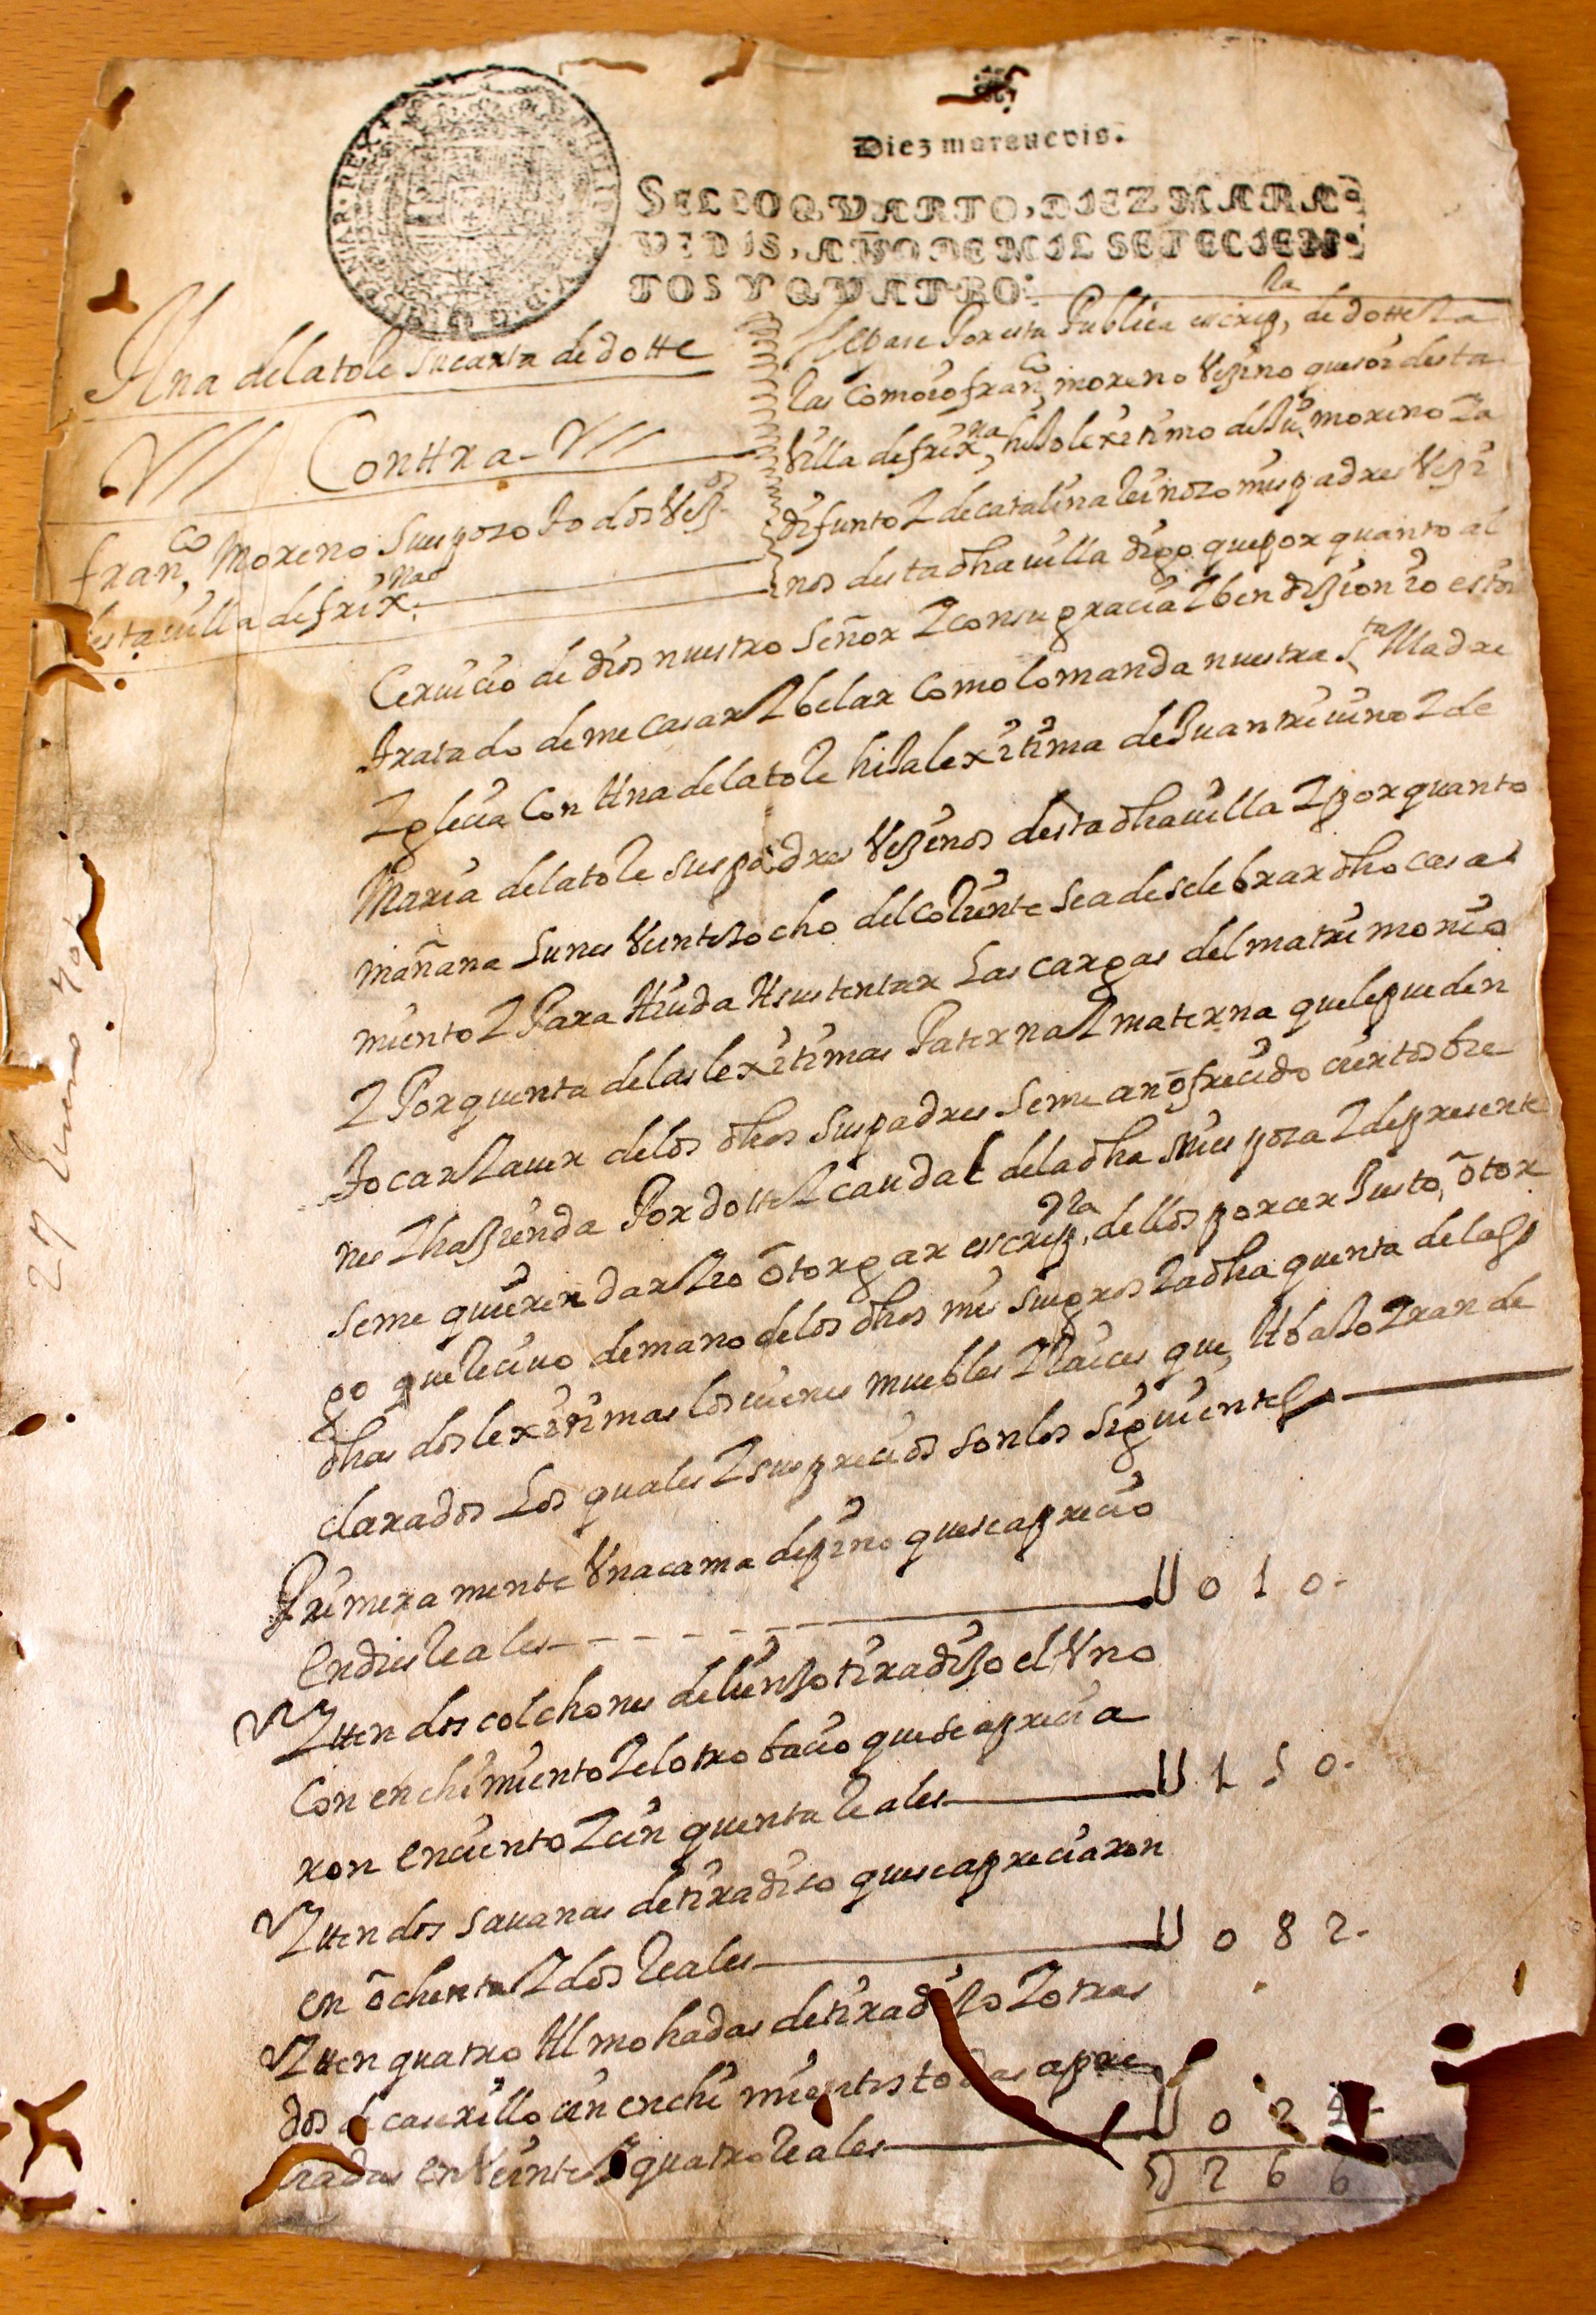 Diez marauedis.
SELLO QVARTO, DIEZ MARA-
VEDIS, AÑO DE MIL SETECIEN-
TOS Y QVATRO.
Ana de la tole su carta de dotte
Conttra
fran,co Moreno su esposo todos Vezos
desta uilla de frixnas
Sepase Por esta Publica escripra, de dotte La
las como io fran,co moreno Vezino que soi desta
Villa de frixna, hiJo lexitimo de Ju,o moreno Ya
difunto Y de catalina Reinozo mis padres Vezi
nos desta dha uilla digo que por quanto al
Ceruicio de dios nuestro Señor Y con su gracia Y bendizion io estoi
tratado de me casar Y belar Como lo manda nuestra S,ta Madre
Yglecia Con Ana de la tole hiJa lexitima de Juan triuino Y de
Maria de la tole sus padres Vezinos desta dha uilla Y por quanto
mañana Lunes Veinte Y ocho del coRiente sea de selebrar dho casa
miento Y Para Aiuda A sustentar Las cargas del matrimonio
Y Por quenta de las lexitimas Paterna Y materna que le pueden
tocar Y auer de los dhos sus padres Se me an ofrecido ciertos bie
nes Y hazienda Por dotte Y caudal de la dha mi esposa Y de presente
se me quieren dar Y io otorgar escripra, dellos por cer Justo, otor
go que Reciuo de mano de los dhos mis suegros Y a dha quenta de las
dhas dos lexitimas los uienes muebles Y Raices que, Abajo Yran de
clarados Los quales Y sus precios son los Siguientes
Primera mente Vna cama de pino que se aprecio
En dies Reales U 0 1 0 -
Ytten dos colchones de lienzo tiradizo el Vno
Con enchimiento Y el otro bacio que se aprecia
ron en ciento Y cin quenta Reales U 1 5 0 -
Ytten dos sauanas de tiradiso que se apreciaron
en ochenta Y dos Reales U 0 8 2 -
Ytten quatro Almohadas de tiradizo Y otras
dos de caserillo cin enchimientos todas apre
ciadas en Veinte Y quatro Reales U 0 2 4 -
U 2 6 6